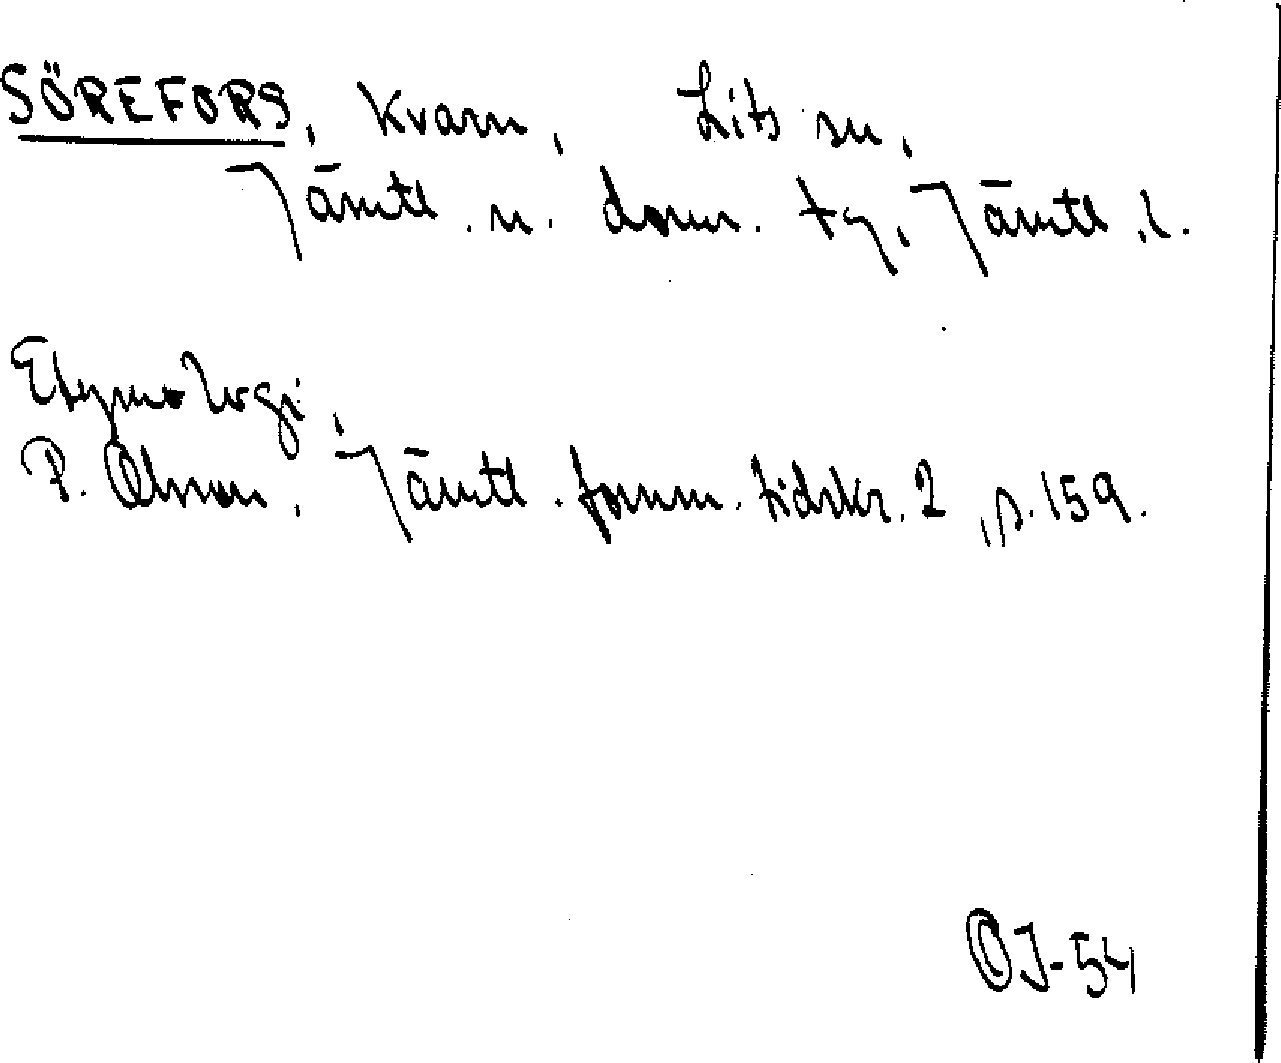 SÖREFORS, kvarn, Lits sn,
Jämtl. n. doms. tg, Jämtl. l.
Etymologi,
P. Olsson, Jämtl. fornm. tidskr. 2, s. 159.
OJ-54